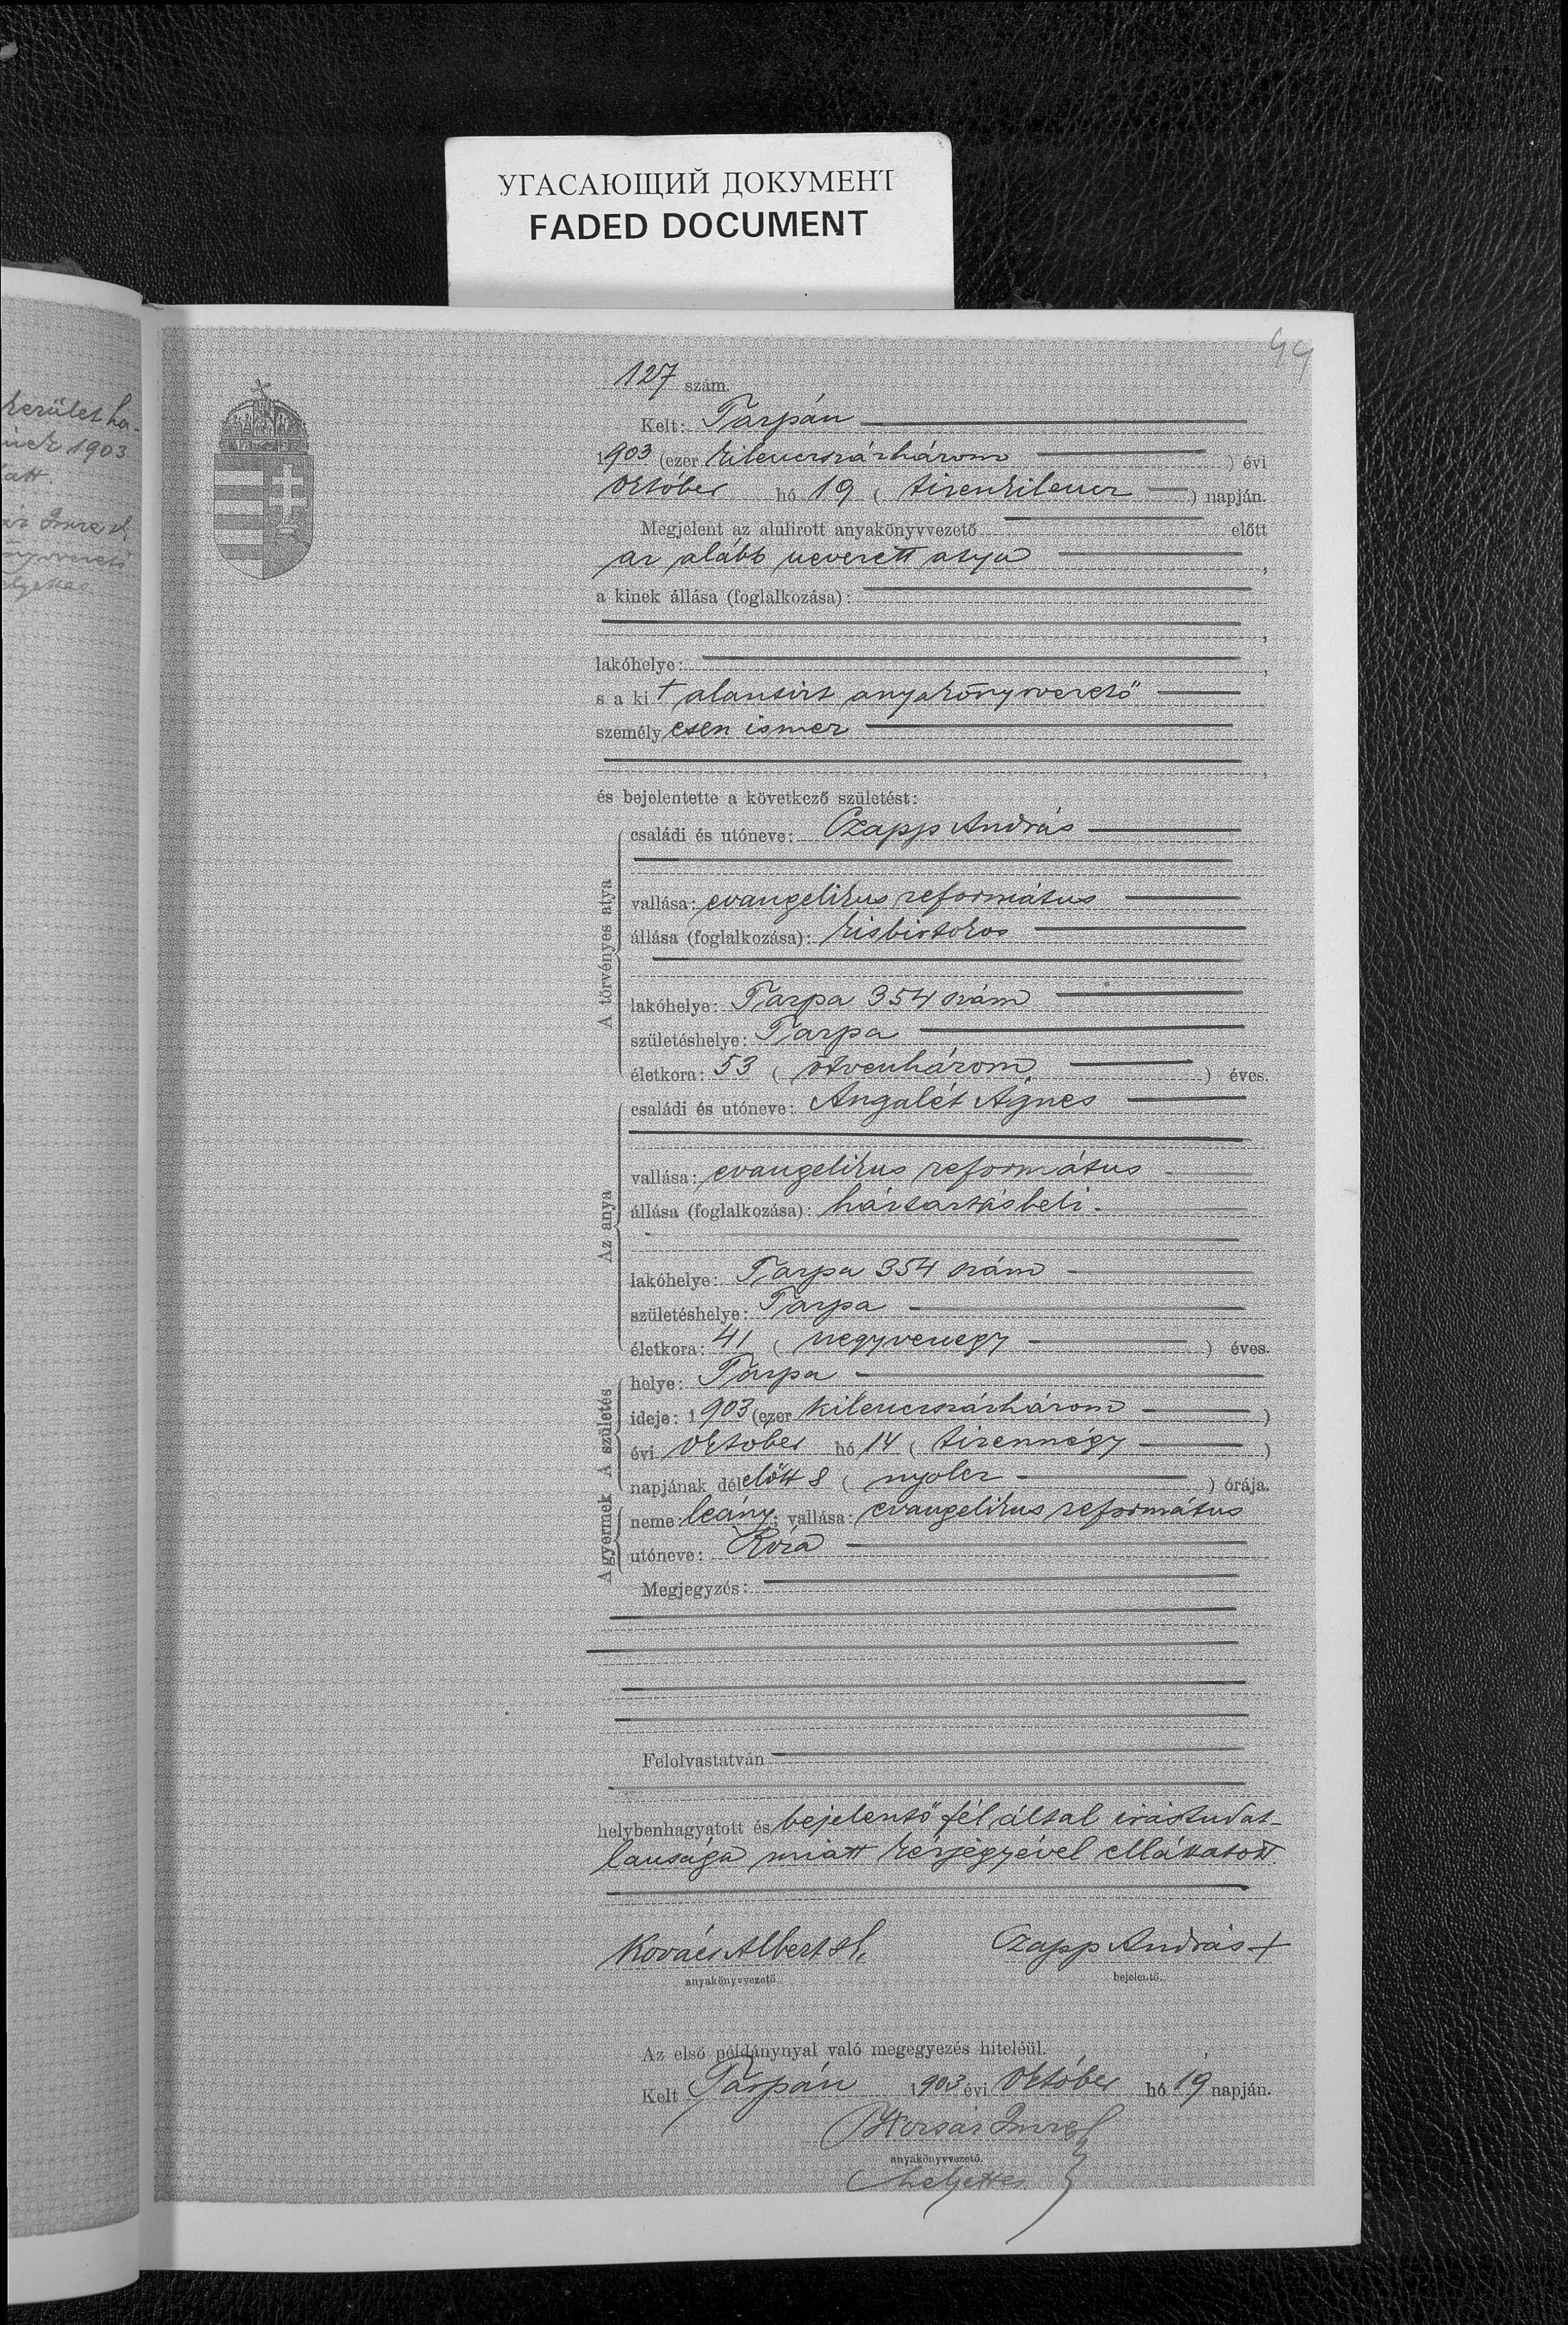 УГАСАЮЩИЙ ДОКУМЕНТ
FADED DOCUMENT
99
kerület ha-
1903
127 szám.
Kelt: Tarpán
1903 (ezer kilencszázhárom) évi
október hó 19 (tizenkilencz) napján.
Megjelent az alulirott anyakönyvvezető előtt
az alább nevezett atya,
a kinek állása (foglalkozása):
,
lakóhelye: ,
s a kit alantirt anyakönyvvezető
személyesen ismer
,
és bejelentette a következő születést:
A törvényes atya
családi és utóneve: Czapp András
vallása: evangelikus református
állása (foglalkozása): kisbirtokos
lakóhelye: Tarpa 354 szám
születéshelye: Tarpa
életkora: 53 (ötvenhárom) éves.
Az anya
családi és utóneve: Angalét Ágnes
vallása: evangelikus református
állása (foglalkozása): háztartásbeli
lakóhelye: Tarpa 354 szám
születéshelye: Tarpa
életkora: 41 (negyvenegy) éves.
A születés
helye: Tarpa
ideje: 1903 (ezer kilencszázhárom)
évi október hó 14 (tizennégy)
napjának délelőtt 8 (nyolcz) órája.
A gyermek
neme: leány; vallása: evangelikus református
utóneve: Róza
Megjegyzés:
Felolvastatván
helybenhagyatott és bejelentő fél által irástudat-
lansága miatt kézjegyével elláttatott
Kovács Albert sk. Czapp András +
anyakönyvvezető bejelentő.
Az első példánynyal való megegyezés hiteléül.
Kelt Tarpán 1903 évi október hó 19 napján.
Imre
anyakönyvvezető.
helyettes